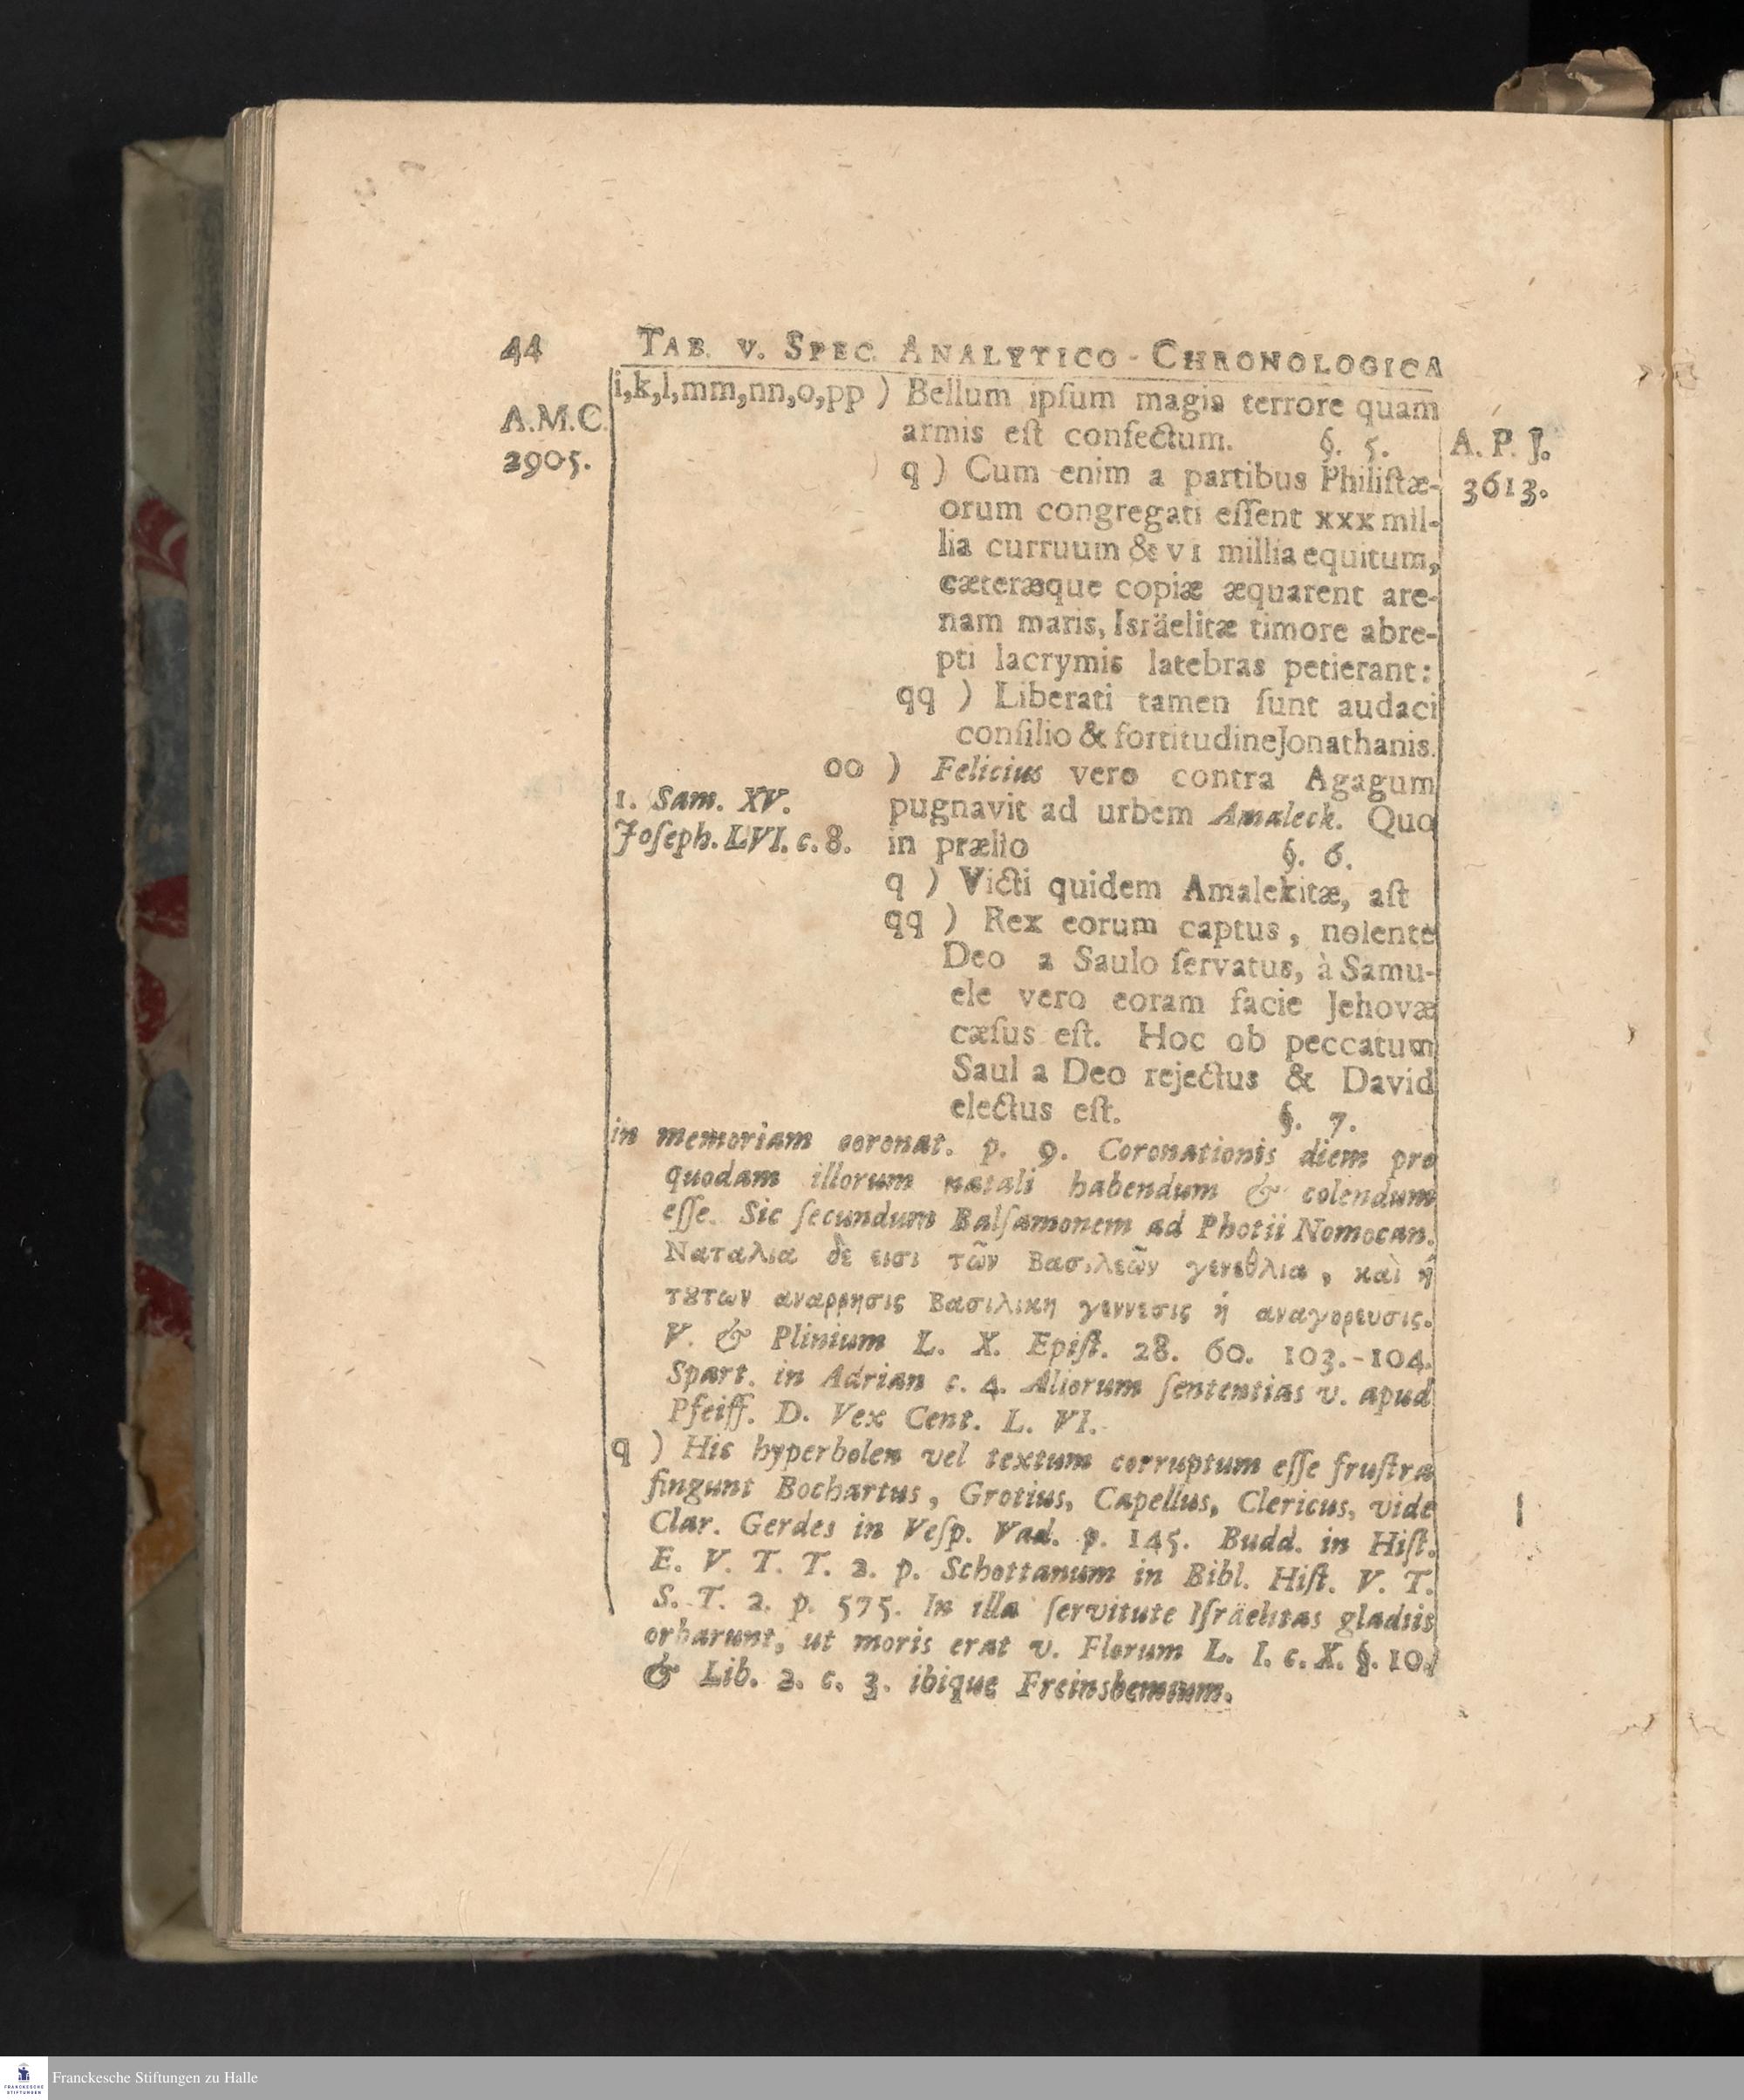 44 TAB. V. SPEC. ANALYTICO-CHRONOLOGICA
A.M.C.
2905.
i,k,l,mm,nn,o,pp ) Bellum ipſum magis terrore quam
armis eſt confectum. §. 5.
A. P. J.
3613.
q ) Cum enim a partibus Philiſtæ-
orum congregati eſſent xxx mil-
lia curruum & VI millia equitum,
cæteræque copiæ æquarent are-
nam maris, Isräelitæ timore abre-
pti lacrymis latebras petierant:
qq ) Liberati tamen ſunt audaci
conſilio & fortitudine Jonathanis.
oo ) Felicius vero contra Agagum
1. Sam. XV.
pugnavit ad urbem Amaleck. Quo
Joſeph. LVI. c. 8.
in prælio §. 6.
q ) Victi quidem Amalekitæ, aſt
qq ) Rex eorum captus, nolente
Deo a Saulo ſervatus, à Samu-
ele vero eoram facie Jehovæ
cæſus eſt. Hoc ob peccatum
Saul a Deo rejectus & David
electus eſt. §. 7.
in memoriam coronat. p. 9. Coronationis diem pro
quodam illorum natali habendum & colendum
eſſe. Sic ſecundum Balſamonem ad Photii Nomocan.
Ναταλια δὲ εισι τῶν Βασιλεῶν γενεθλια, καὶ ἡ
τȣτων αναρρησις Βασιλικη γεννεσις ἡ αναγορευσις.
V. & Plinium L. X. Epiſt. 28. 60. 103.-104.
Spart. in Adrian c. 4. Aliorum ſententias v. apud
Pfeiff. D. Vex Cent. L. VI.
q ) His hyperbolen vel textum corruptum eſſe fruſtra
fingunt Bochartus, Grotius, Capellus, Clericus, vide
Clar. Gerdes in Veſp. Vad. p. 145. Budd. in Hiſt.
E. V. T. T. 2. p. Schottanum in Bibl. Hiſt. V. T.
S. T. 2. p. 575. In illa ſervitute Iſräelitas gladiis
orbarunt, ut moris erat v. Florum L. I. c. X. §. 10.
& Lib. 2. c. 3. ibique Freinshemium.
Franckesche Stiftungen zu Halle
FRANCKESCHE
STIFTUNGEN